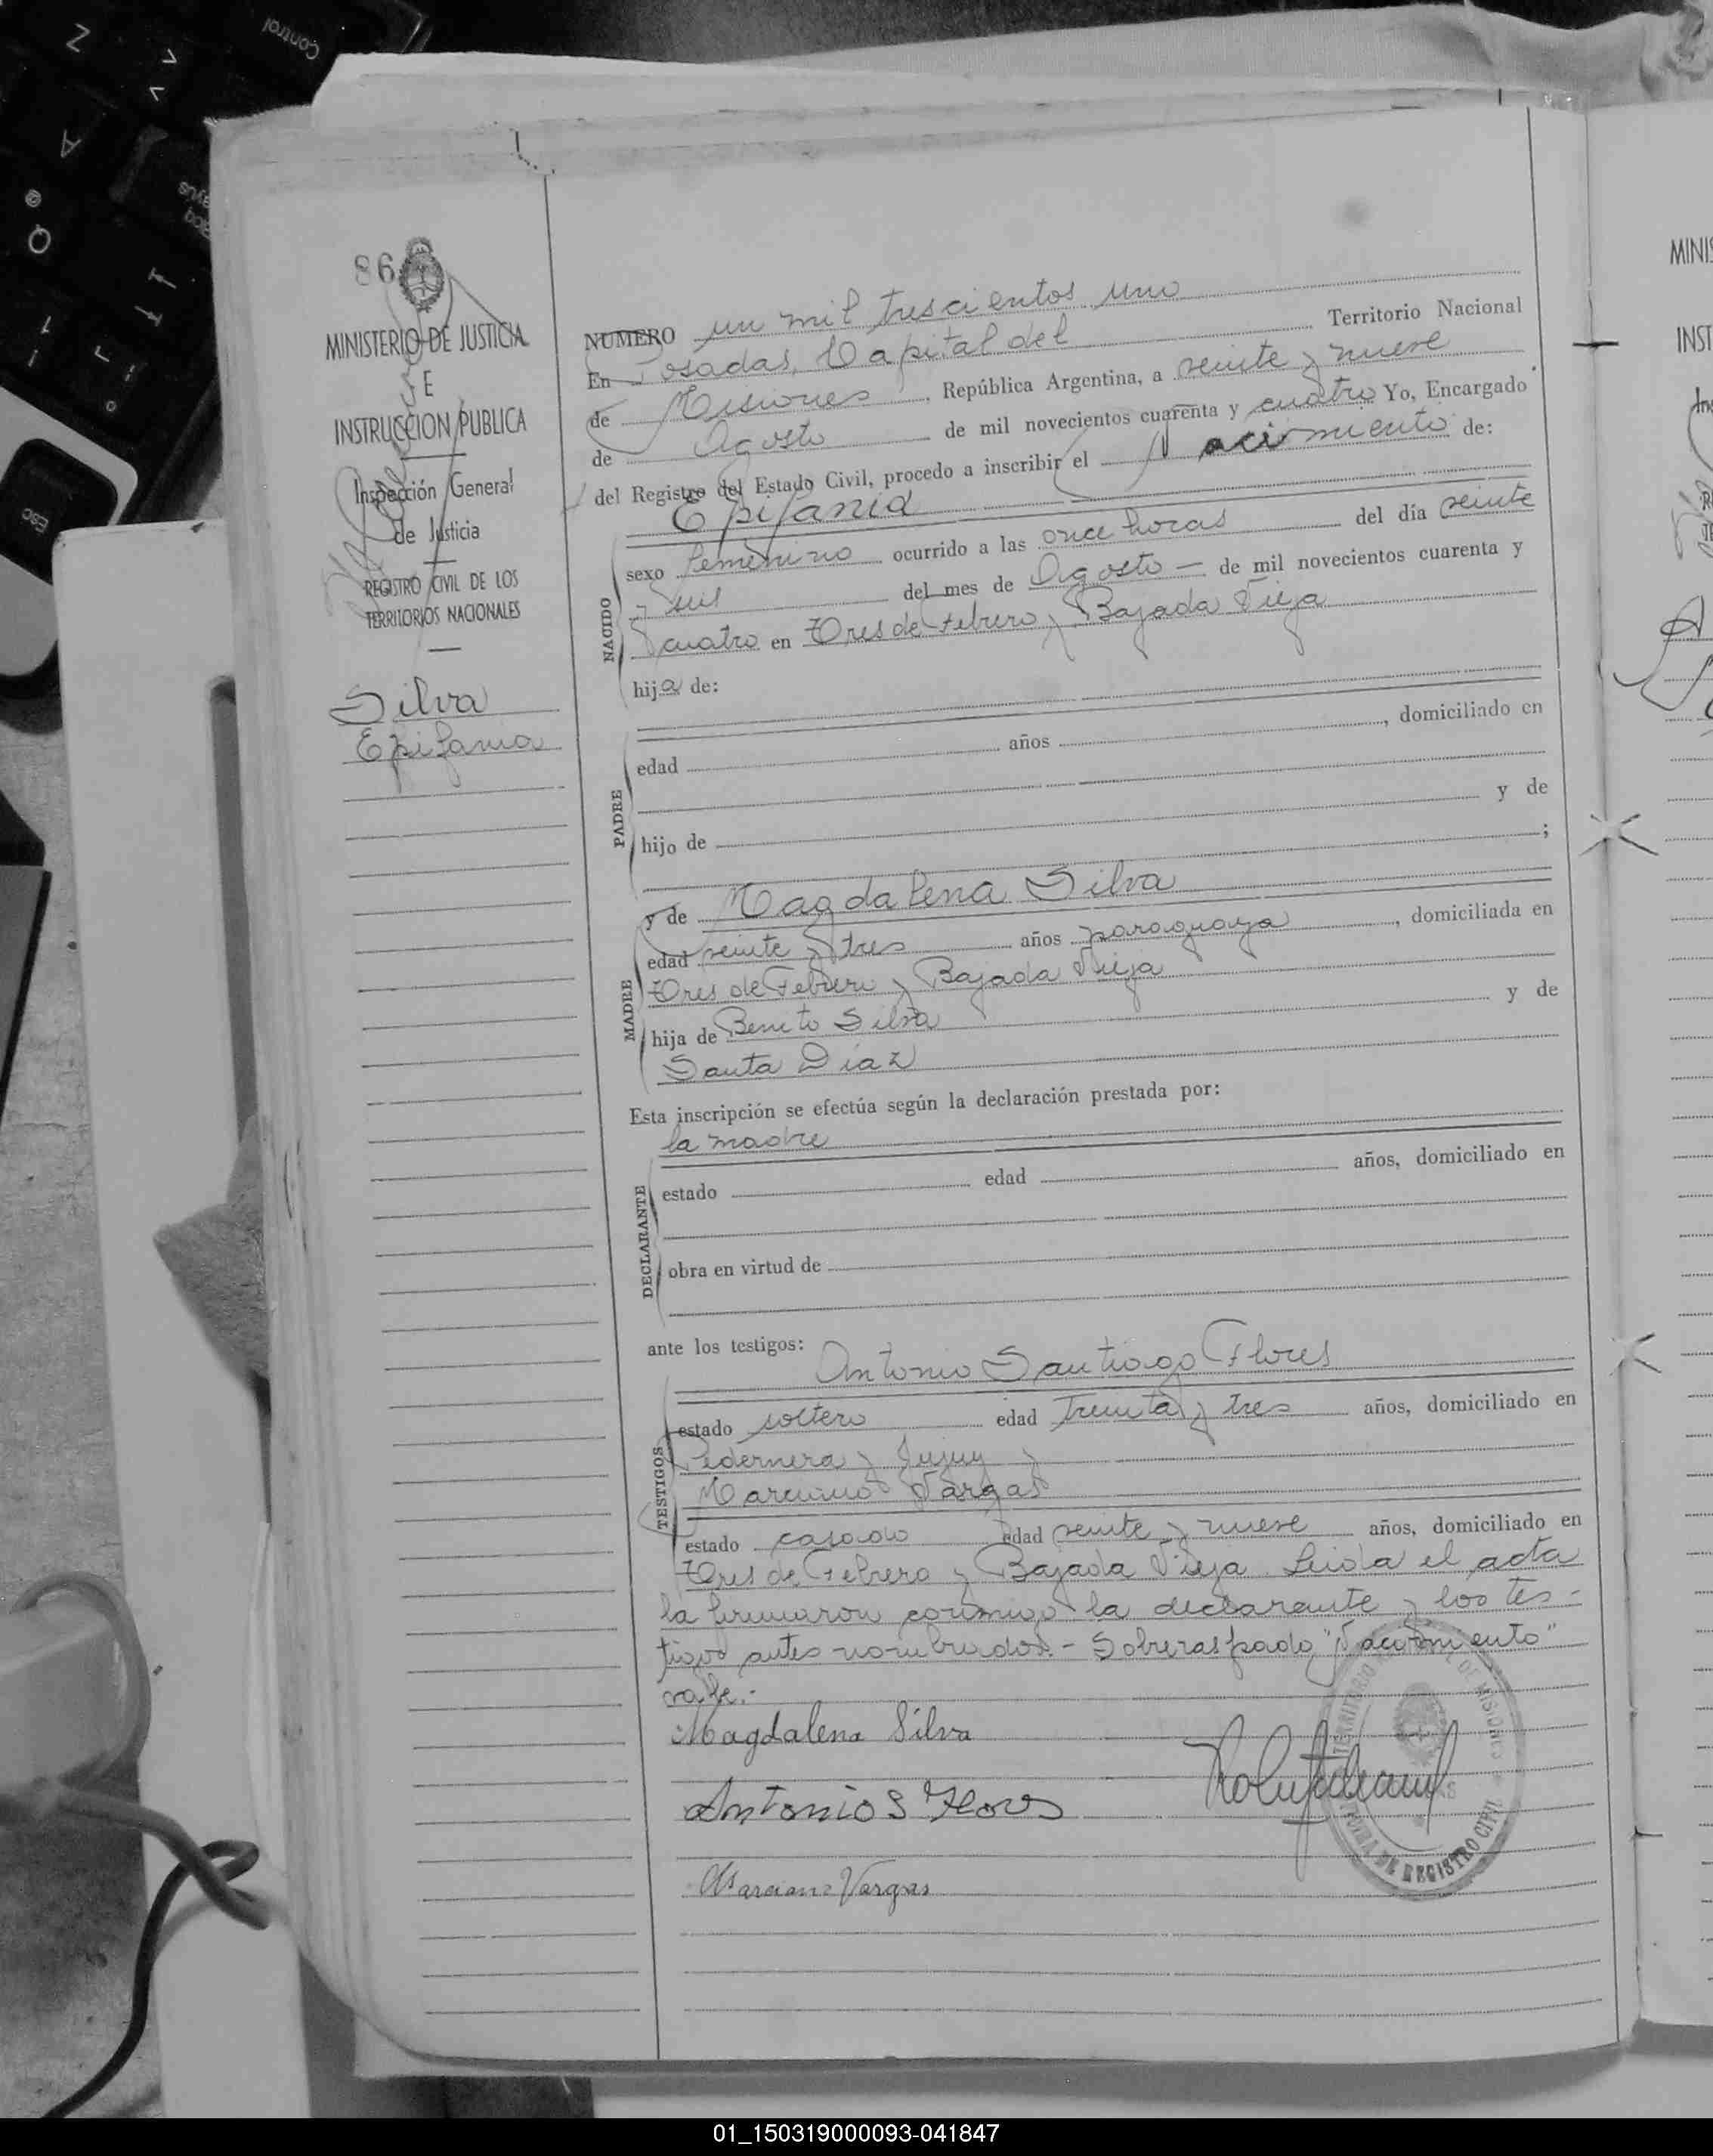 86
MINISTERIO DE JUSTICIA
E
INSTRUCCION PUBLICA
Inspección General
de Justicia
REGISTRO CIVIL DE LOS
TERRITORIOS NACIONALES
Silva
Epifania
NUMERO un mil trescientos uno
En Posadas, Capital del Territorio Nacional
de Misiones, República Argentina, a veinte y nueve
de Agosto de mil novecientos cuarenta y cuatro Yo, Encargado
del Registro del Estado Civil, procedo a inscribir el Nacimiento de:
Epifania
NACIDO
sexo femenino ocurrido a las once horas del día veinte
y seis del mes de Agosto — de mil novecientos cuarenta y
cuatro en Tres de Febrero y Bajada Vieja
hija de:
PADRE
edad años , domiciliado en
hijo de y de
;
y de Magdalena Silva
MADRE
edad veinte y tres años paraguaya, domiciliada en
Tres de Febrero y Bajada Vieja
hija de Benito Silva y de
Santa Diaz
Esta inscripción se efectúa según la declaración prestada por:
la madre
DECLARANTE
estado edad años, domiciliado en
obra en virtud de
ante los testigos:
Antonio Santiago Flores
TESTIGOS
estado soltero edad treinta y tres años, domiciliado en
Pedernera y Jujuy y
Marciano Vargas
estado casado edad veinte y nueve años, domiciliado en
Tres de Febrero y Bajada Vieja. Leida el acta
la firmaron conmigo la declarante y los tes-
tigos antes nombrados.- Sobreraspado "Nacimiento"
vale.-
Magdalena Silva
Antonio S Flores
Marciano Vargas
TERRITORIO DE MISIONES
REGISTRO CIVIL
Control
Z
A
@
Q
Esc
MINIS
INST
01_150319000093-041847